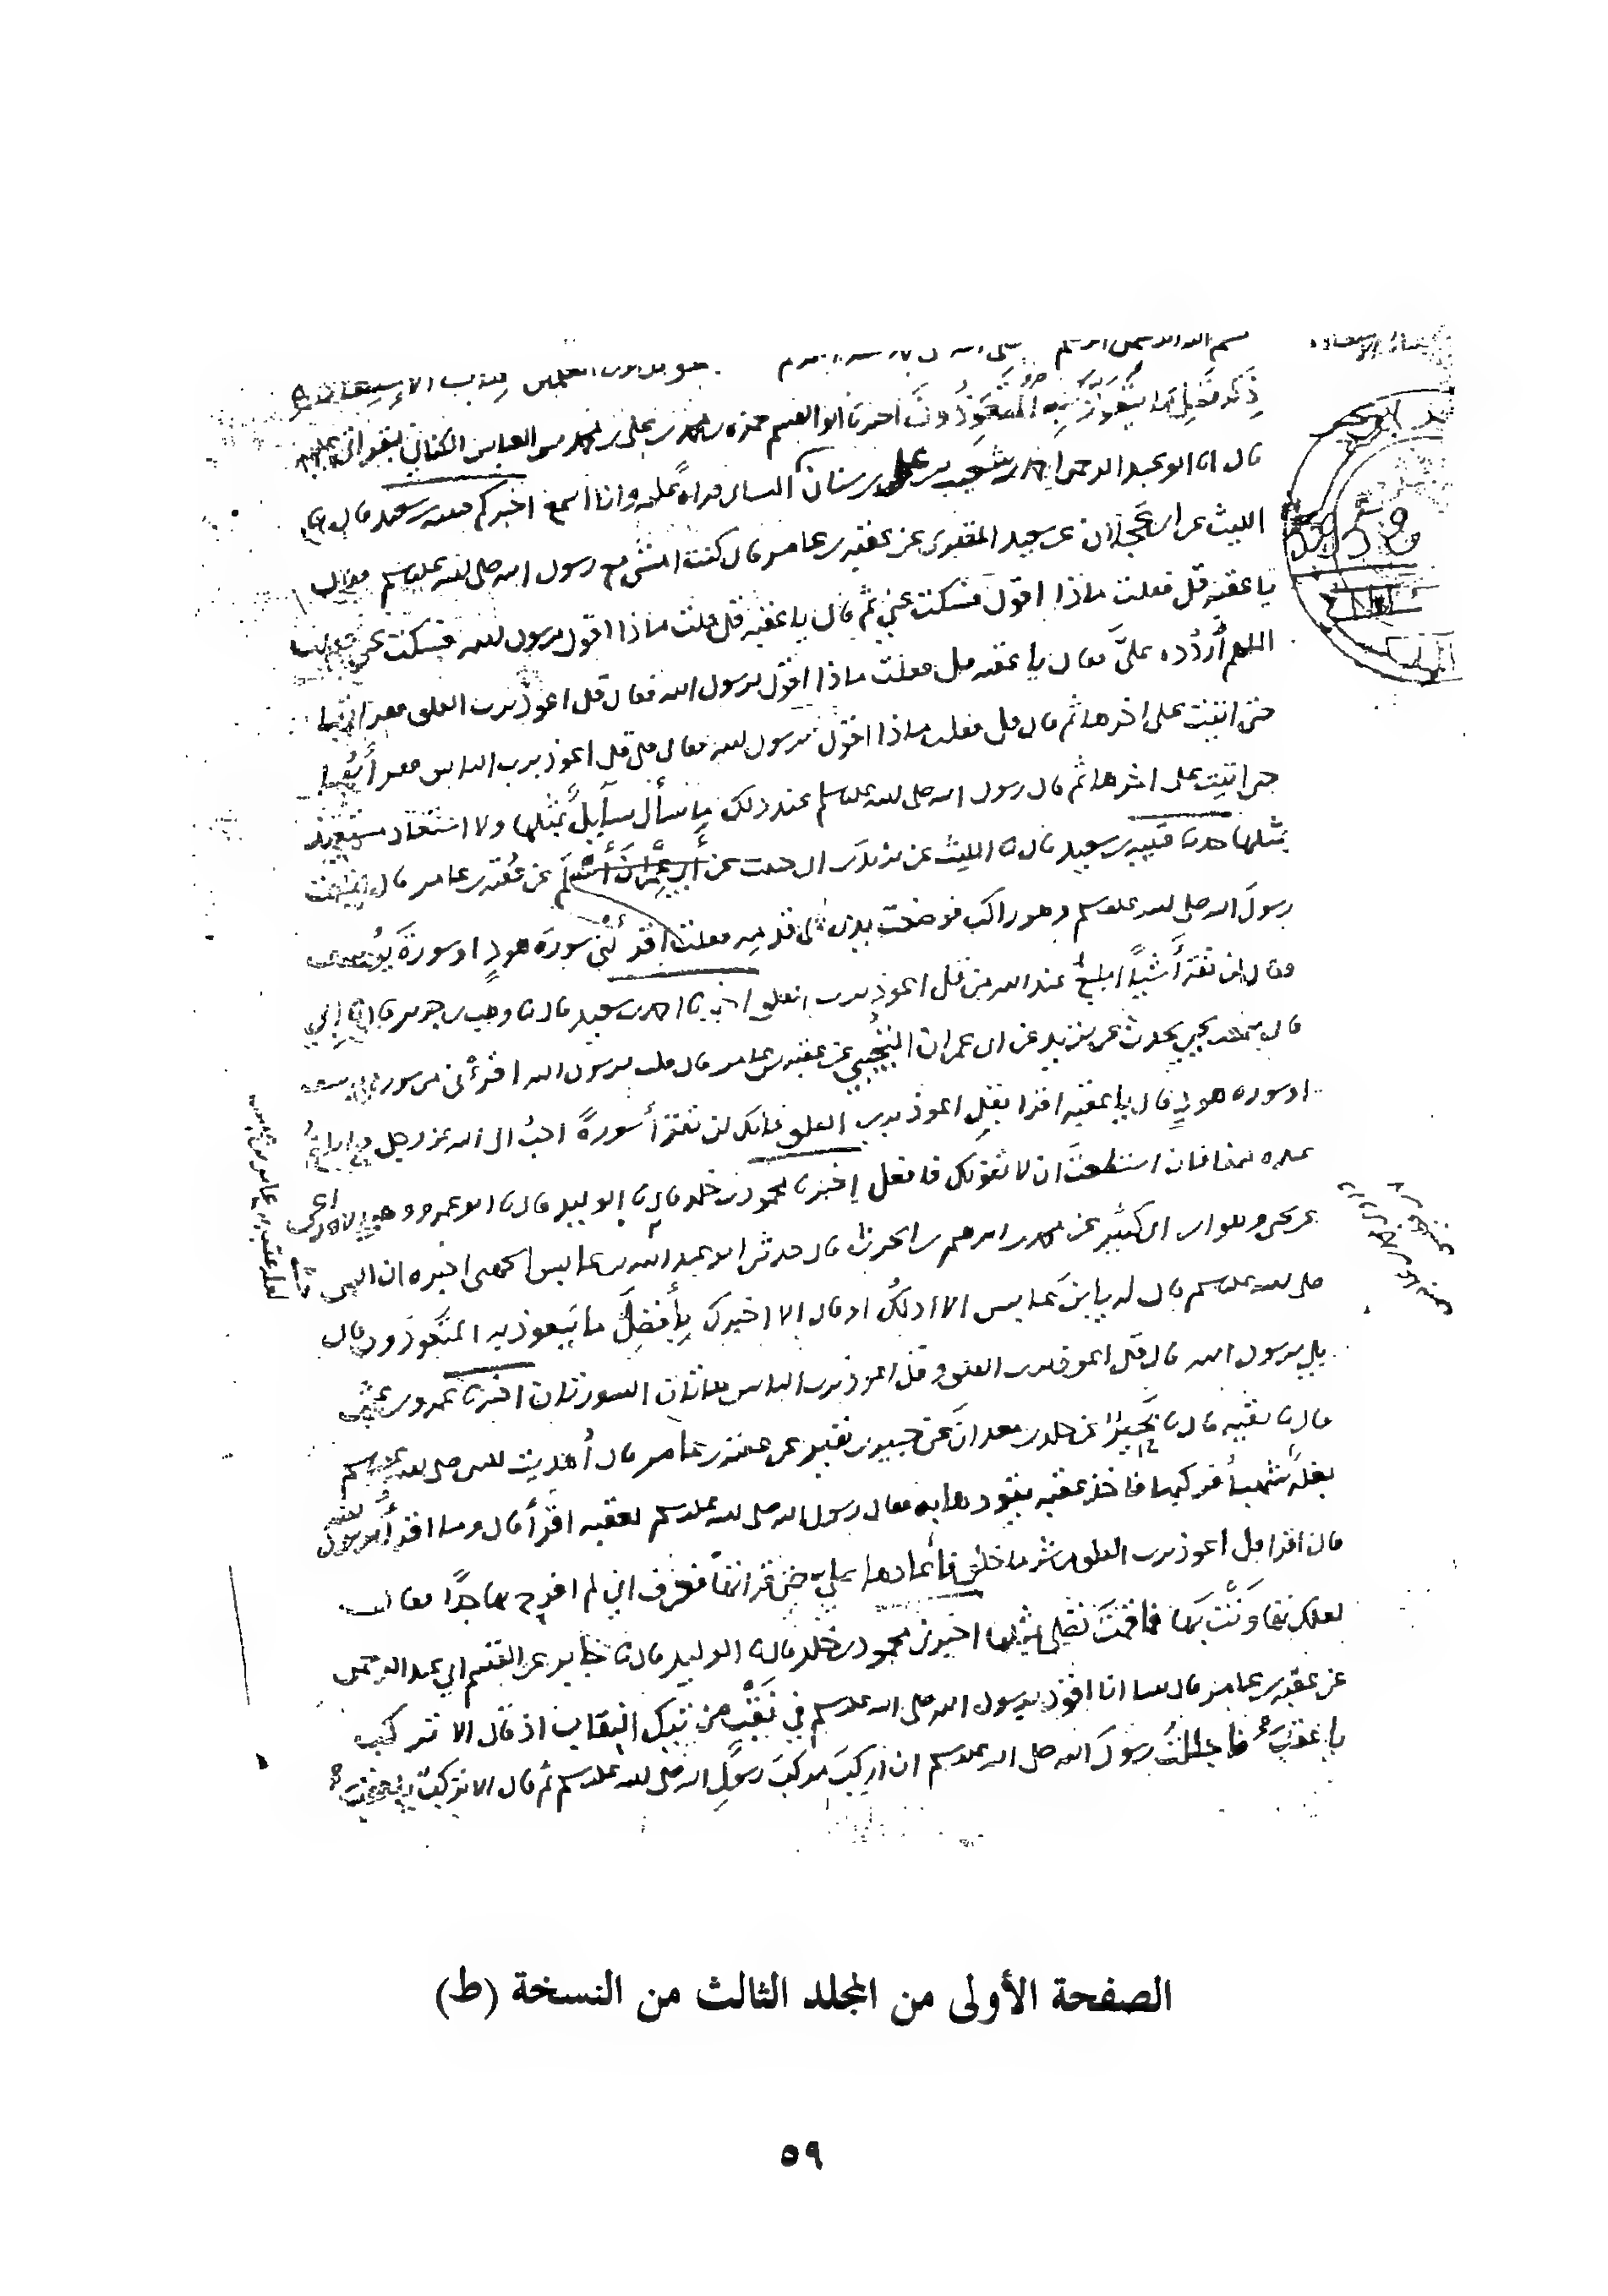 بسم الله الرحمن الرحيم
ذكر فضل ما يتعوذ به المتعوذون اخبرنا ابو القسم حمزه بن محمد بن علي بن محمد بن العباس الكناني بقراتي عليه
قال انا ابو عبد الرحمن احمد بن شعيب بن علي بن سنان النسائي قراه عليه وانا اسمع اخبركم قتيبه بن سعيد قال نا
الليث عن ابن عجلان عن سعيد المقبري عن عقبه بن عامر قال كنت امشي مع رسول الله صلى الله عليه وسلم فقال
يا عقبه قل فقلت ماذا اقول فسكت عني ثم قال يا عقبه قل قلت ماذا اقول يرسول الله فسكت عني فقلت
اللهم اردده علي فقال يا عقبه قل فقلت ماذا اقول يرسول الله فقال قل اعوذ برب الفلق فقراتها
حتى اتيت على اخرها ثم قال قل فقلت ماذا اقول يرسول الله فقال قل اعوذ برب الناس فقراتها
حتى اتيت على اخرها ثم قال رسول الله صلى الله عليه وسلم عند ذلك ما سأل سآيل بمثلها ولا استعاذ مستعيذ
بمثلها حدثنا قتيبه بن سعيد قال نا الليث عن يزيد بن ابي حبيب عن أبي عمران أسلم عن عقبه بن عامر قال اتبعت
رسول الله صلى الله عليه وسلم وهو راكب فوضعت يدي على قدمه فقلت اقرئني سورة هود او سورة يوسف
فقال لن تقرأ شيأ ابلغ عند الله من قل اعوذ برب الفلق اخبرنا احمد بن سعيد قال نا وهب بن جرير قال نا ابي
قال سمعت يحيى يحدث عن يزيد عن ابي عمران التجيبي عن عقبه بن عامر قال قلت يرسول الله اقرئني من سورة يوسف
او سوره هود قال يا عقبه اقرا بقل اعوذ برب الفلق فانك لن تقرأ سورة احب الى الله عز وجل وابلغ
عنده منها فان استطعت ان لا تفوتك فافعل اخبرنا محمود بن خلد قال نا الوليد قال نا ابو عمرو وهو الاوزاعي
عن يحيى وهو ابن ابي كثير عن محمد بن ابرهيم بن الحرث قال حدثني ابو عبد الله بن عابس الجهني اخبره ان النبي
صلى الله عليه وسلم قال له يا ابن عابس الا ادلك او قال الا اخبرك بأفضل ما يتعوذ به المتعوذون قال
بلى يرسول الله قال قل اعوذ برب الفلق وقل اعوذ برب الناس هاتان السورتان اخبرنا عمرو بن عثمن
قال نا بقيه قال نا بحير عن خلد بن معدان عن جبير بن نفير عن عقبه بن عامر قال أهديت للنبي صلى الله عليه وسلم
بغلة شهبا فركبها فاخذ عقبه يقود بها به فقال رسول الله صلى الله عليه وسلم لعقبه اقرأ قال وما اقرأ يرسول الله
قال اقرا قل اعوذ برب الفلق من شر ما خلق فأعادها علي حتى قراتها فعرف اني لم افرح بها جدا فقال
لعلك تهاونت بها فما قمت تصلي بمثلها اخبرني محمود بن خلد قال نا الوليد قال نا ابن جابر عن القسم ابي عبد الرحمن
عن عقبه بن عامر قال بينا انا اقود برسول الله صلى الله عليه وسلم في نقب من تيك النقاب اذ قال الا تركب
يا عقبة فاجللت رسول الله صلى الله عليه وسلم ان اركب مركب رسول الله صلى الله عليه وسلم ثم قال الا تركب يا عقبة
الصفحة الأولى من المجلد الثالث من النسخة (ط)
٥٩